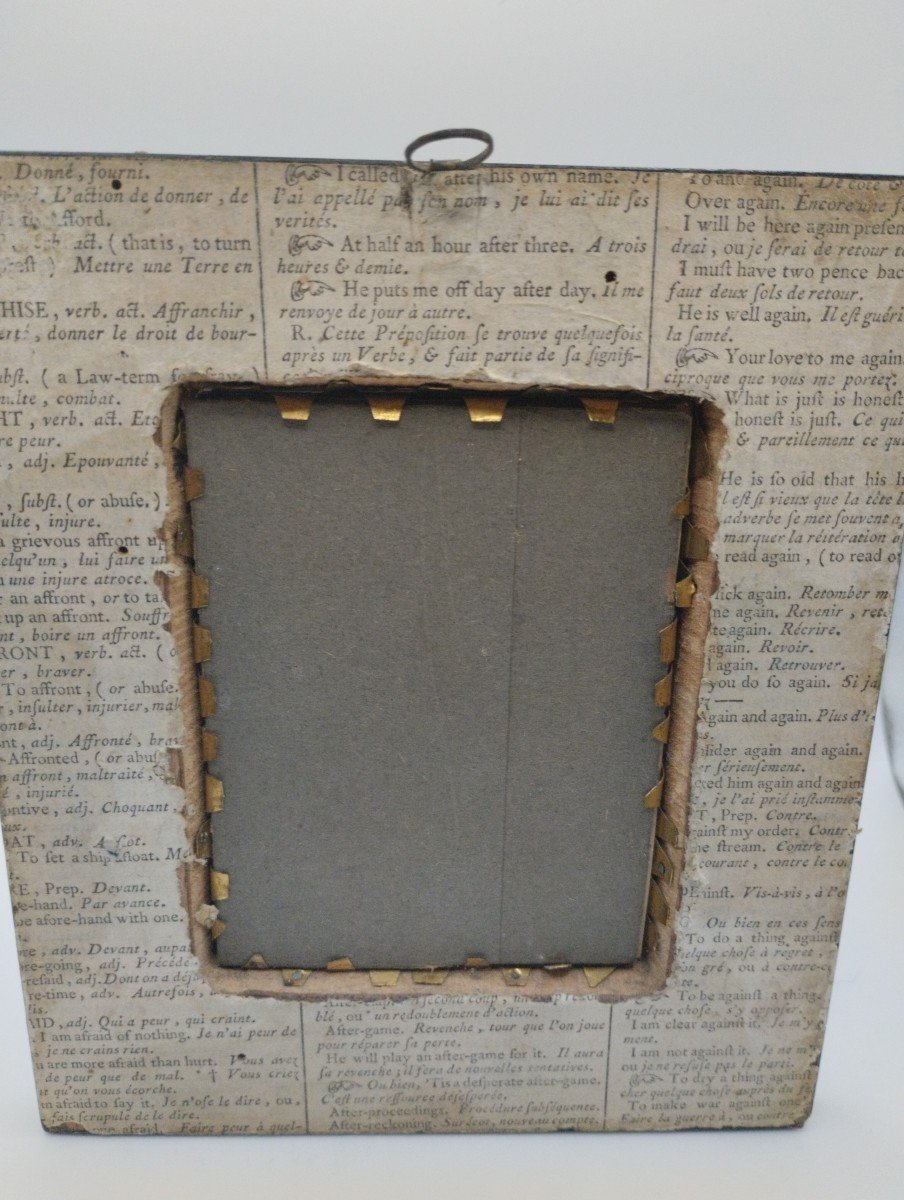 Donné, fourni.
L'action de donner, de
fford.
act. (that is, to turn
Mettre une Terre en
HISE, verb. act. Affranchir,
donner le droit de bour-
ubſt. (a Law-term
combat.
HT, verb. act.
re peur.
, adj. Epouvanté,
, ſubſt. (or abuſe.)
ſulte, injure.
a grievous affront up
elqu'un, lui faire un
une injure atroce.
an affront, or to ta
up an affront. Souffr
nt, boire un affront.
RONT, verb. act. (
er, braver.
To affront, (or abuſe.
, inſulter, injurier, mal
nt, adj. Affronté, brav
Affronted, (or abuſ
affront, maltraité,
é, injurié.
ontive, adj. Choquant.
ux.
OAT, adv. A flot.
To ſet a ship afloat.
RE, Prep. Devant.
e-hand. Par avance.
be afore-hand with one.
re, adv. Devant, aupa
re-going, adj. Précéde
reſaid, adj. Dont on a déja
re-time, adv. Autrefois,
AID, adj. Qui a peur, qui craint.
I am afraid of nothing. Je n'ai peur de
, je ne crains rien.
u are more afraid than hurt. Vous avez
de peur que de mal. * † Vous criez
t qu'on vous écorche.
m afraid to ſay it. J'e n'oſe le dire, ou,
fais ſcrupule de le dire.
afraid. Faire peur à quel-
☞ I called after his own name. Je
l'ai appellé par ſon nom, je lui ai dit ſes
verités.
☞ At half an hour after three. A trois
heures & demie.
☞ He puts me off day after day. Il me
renvoye de jour à autre.
R. Cette Prépoſition ſe trouve quelquefois
après un Verbe, & fait partie de ſa ſignifi-
ſecond coup,
blé, ou un redoublement d'action.
After-game. Revenche, tour que l'on joue
pour réparer ſa perte.
He will play an after-game for it. Il aura
ſa revenche; il fera de nouvelles tentatives.
☞ Ou bien, 'Tis a deſperate after-game.
C'est une reſſource déſeſpérée.
After-proceedings. Procédure ſubſéquente.
After-reckoning. Surécot, nouveau compte.
To and again. De côté &
Over again. Encore une f
I will be here again preſen
drai, ou je ſerai de retour t
I muſt have two pence bac
faut deux ſols de retour.
He is well again. Il eſt guéri
la ſanté.
☞ Your love to me again
ciproque que vous me portez.
What is juſt is honeſt
honeſt is juſt. Ce qui
& pareillement ce qu
He is ſo old that his h
l eſt ſi vieux que la tête
adverbe ſe met ſouvent a
marquer la réitération
read again, (to read o
ſick again. Retomber m
me again. Revenir, ret
te again. Récrire.
again. Revoir.
again. Retrouver.
you do ſo again. Si ja
Again and again. Plus d'
s.
ſider again and again.
er ſérieuſement.
ed him again and again
, je l'ai prié inſtamme
T, Prep. Contre.
ainſt my order. Contr
he ſtream. Contre le
courant, contre le co
ainſt. Vis-à-vis, à l'o
Ou bien en ces ſens
To do a thing againſt
uelque choſe à regret,
on gré, ou à contre-c
To be againſt a thing.
quelque choſe, s'y oppoſer.
I am clear againſt it. Je m'y
ment.
I am not againſt it. Je ne m'
ou je ne refuſe pas le parti.
☞ To dry a thing againſt
cher quelque choſe auprès du f
To make war againſt one
Faire la guerre à, ou contre